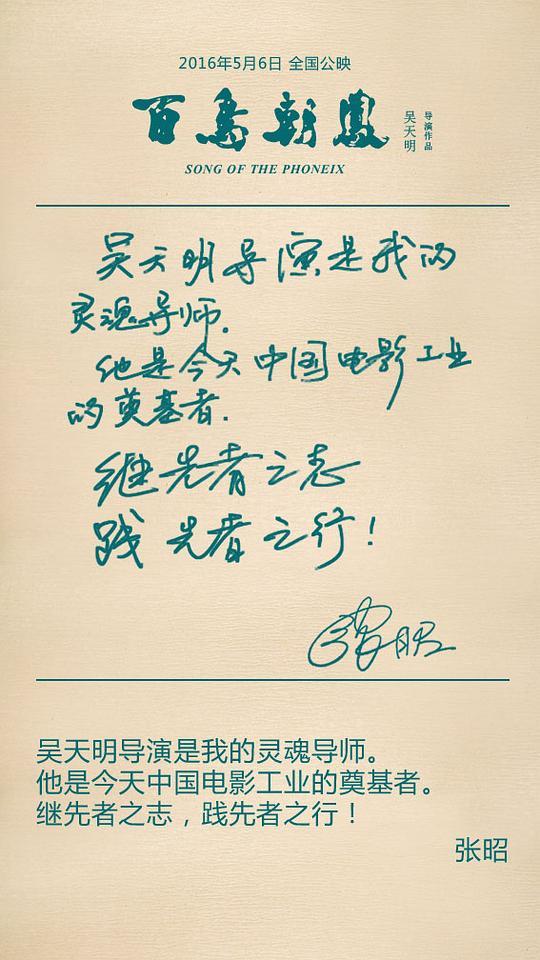 2016年5月6日 全国公映
百鳥朝鳳
吴天明
导演作品
SONG OF THE PHONEIX
吴天明导演是我的
灵魂导师。
他是今天中国电影工业
的奠基者.
继先者之志
践先者之行!
张昭
吴天明导演是我的灵魂导师。
他是今天中国电影工业的奠基者。
继先者之志，践先者之行！
张昭